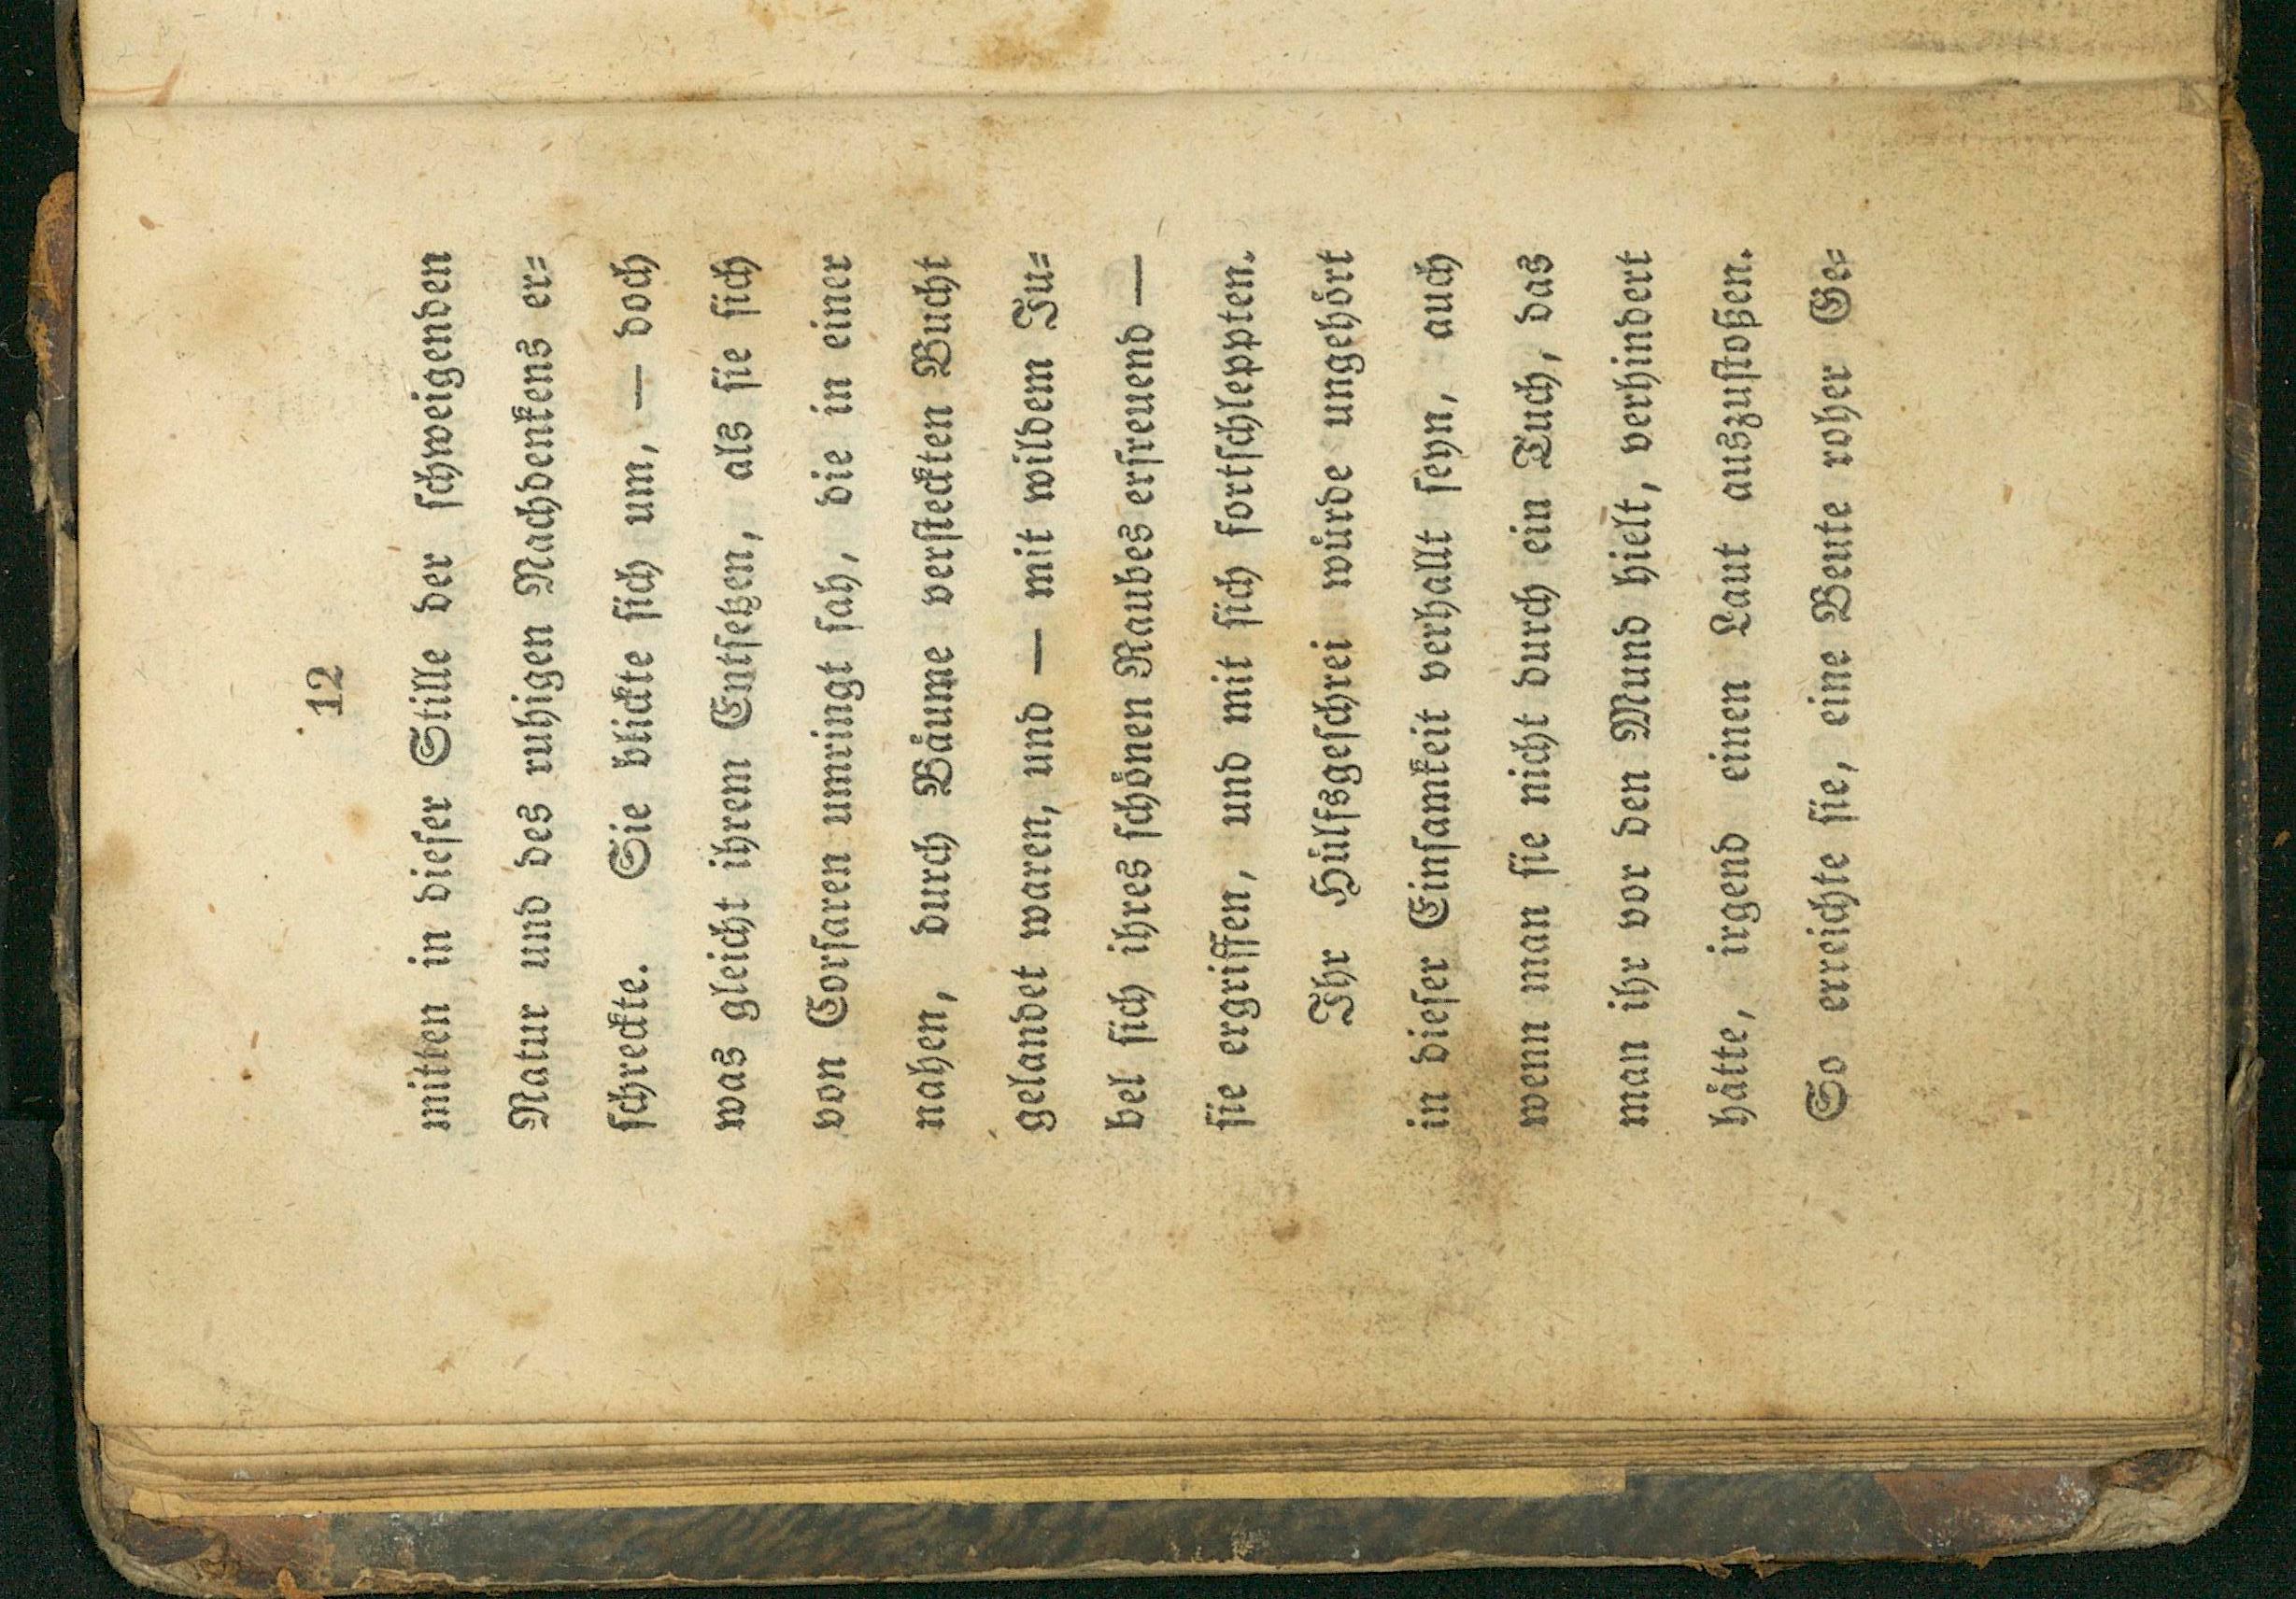 12
mitten in dieſer Stille der ſchweigenden
Natur und des ruhigen Nachdenkens er=
ſchreckte. Sie blickte ſich um, — doch
was gleicht ihrem Entſetzen, als ſie ſich
von Corſaren umringt ſah, die in einer
nahen, durch Baͤume verſteckten Bucht
gelandet waren, und — mit wildem Ju=
bel ſich ihres ſchoͤnen Raubes erfreuend —
ſie ergriffen, und mit ſich fortſchleppten.
Ihr Huͤlfsgeſchrei wuͤrde ungehoͤrt
in dieſer Einſamkeit verhallt ſeyn, auch
wenn man ſie nicht durch ein Tuch, das
man ihr vor den Mund hielt, verhindert
haͤtte, irgend einen Laut auszuſtoßen.
So erreichte ſie, eine Beute roher Ge=